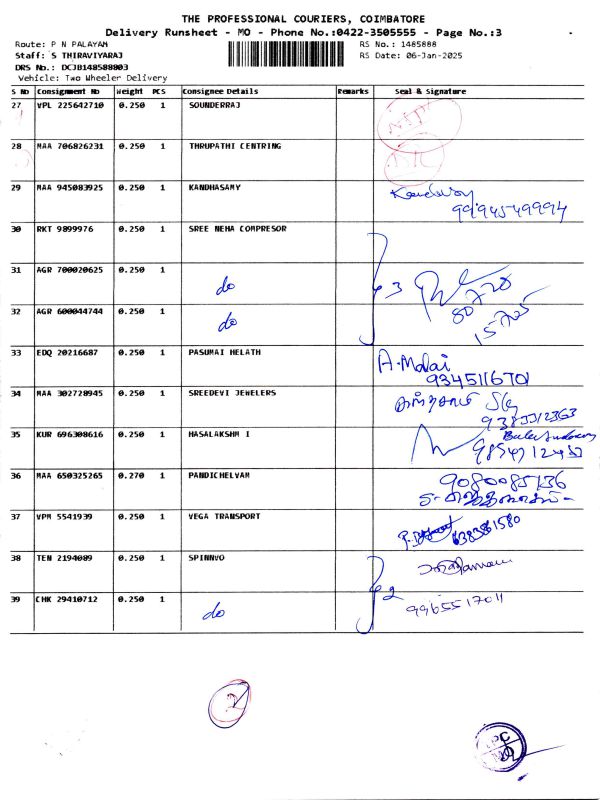 THE PROFESSIONAL COURIERS, COIMBATORE
Delivery Runsheet - MO - Phone No.:0422-3505555 - Page No.:3
Route: P N PALAYAM
RS No.: 1485888
Staff: S THIRAVIYARAJ
RS Date: 06-Jan-2025
DRS No.: DCJB148588803
Vehicle: Two Wheeler Delivery
S No Consignment No Weight PCS Consignee Details Remarks Seal & Signature
27 VPL 225642710 0.250 1 SOUNDERRAJ
28 MAA 706826231 0.250 1 THRUPATHI CENTRING
29 MAA 945083925 0.250 1 KANDHASAMY
9994549994
30 RKT 9899976 0.250 1 SREE NEHA COMPRESOR
31 AGR 700020625 0.250 1 do 3
80720
15725
32 AGR 600044744 0.250 1 do
33 EDQ 20216687 0.250 1 PASUMAI HELATH A. Malai
9345116701
34 MAA 302728945 0.250 1 SREEDEVI JEWELERS
9383312363
35 KUR 696308616 0.250 1 HASALAKSHM I
36 MAA 650325265 0.270 1 PANDICHELVAM 9080085136
37 VPM 5541939 0.250 1 VEGA TRANSPORT
6383861580
38 TEN 2194089 0.250 1 SPINNVO
2
39 CHK 29410712 0.250 1 do 9965517011
2